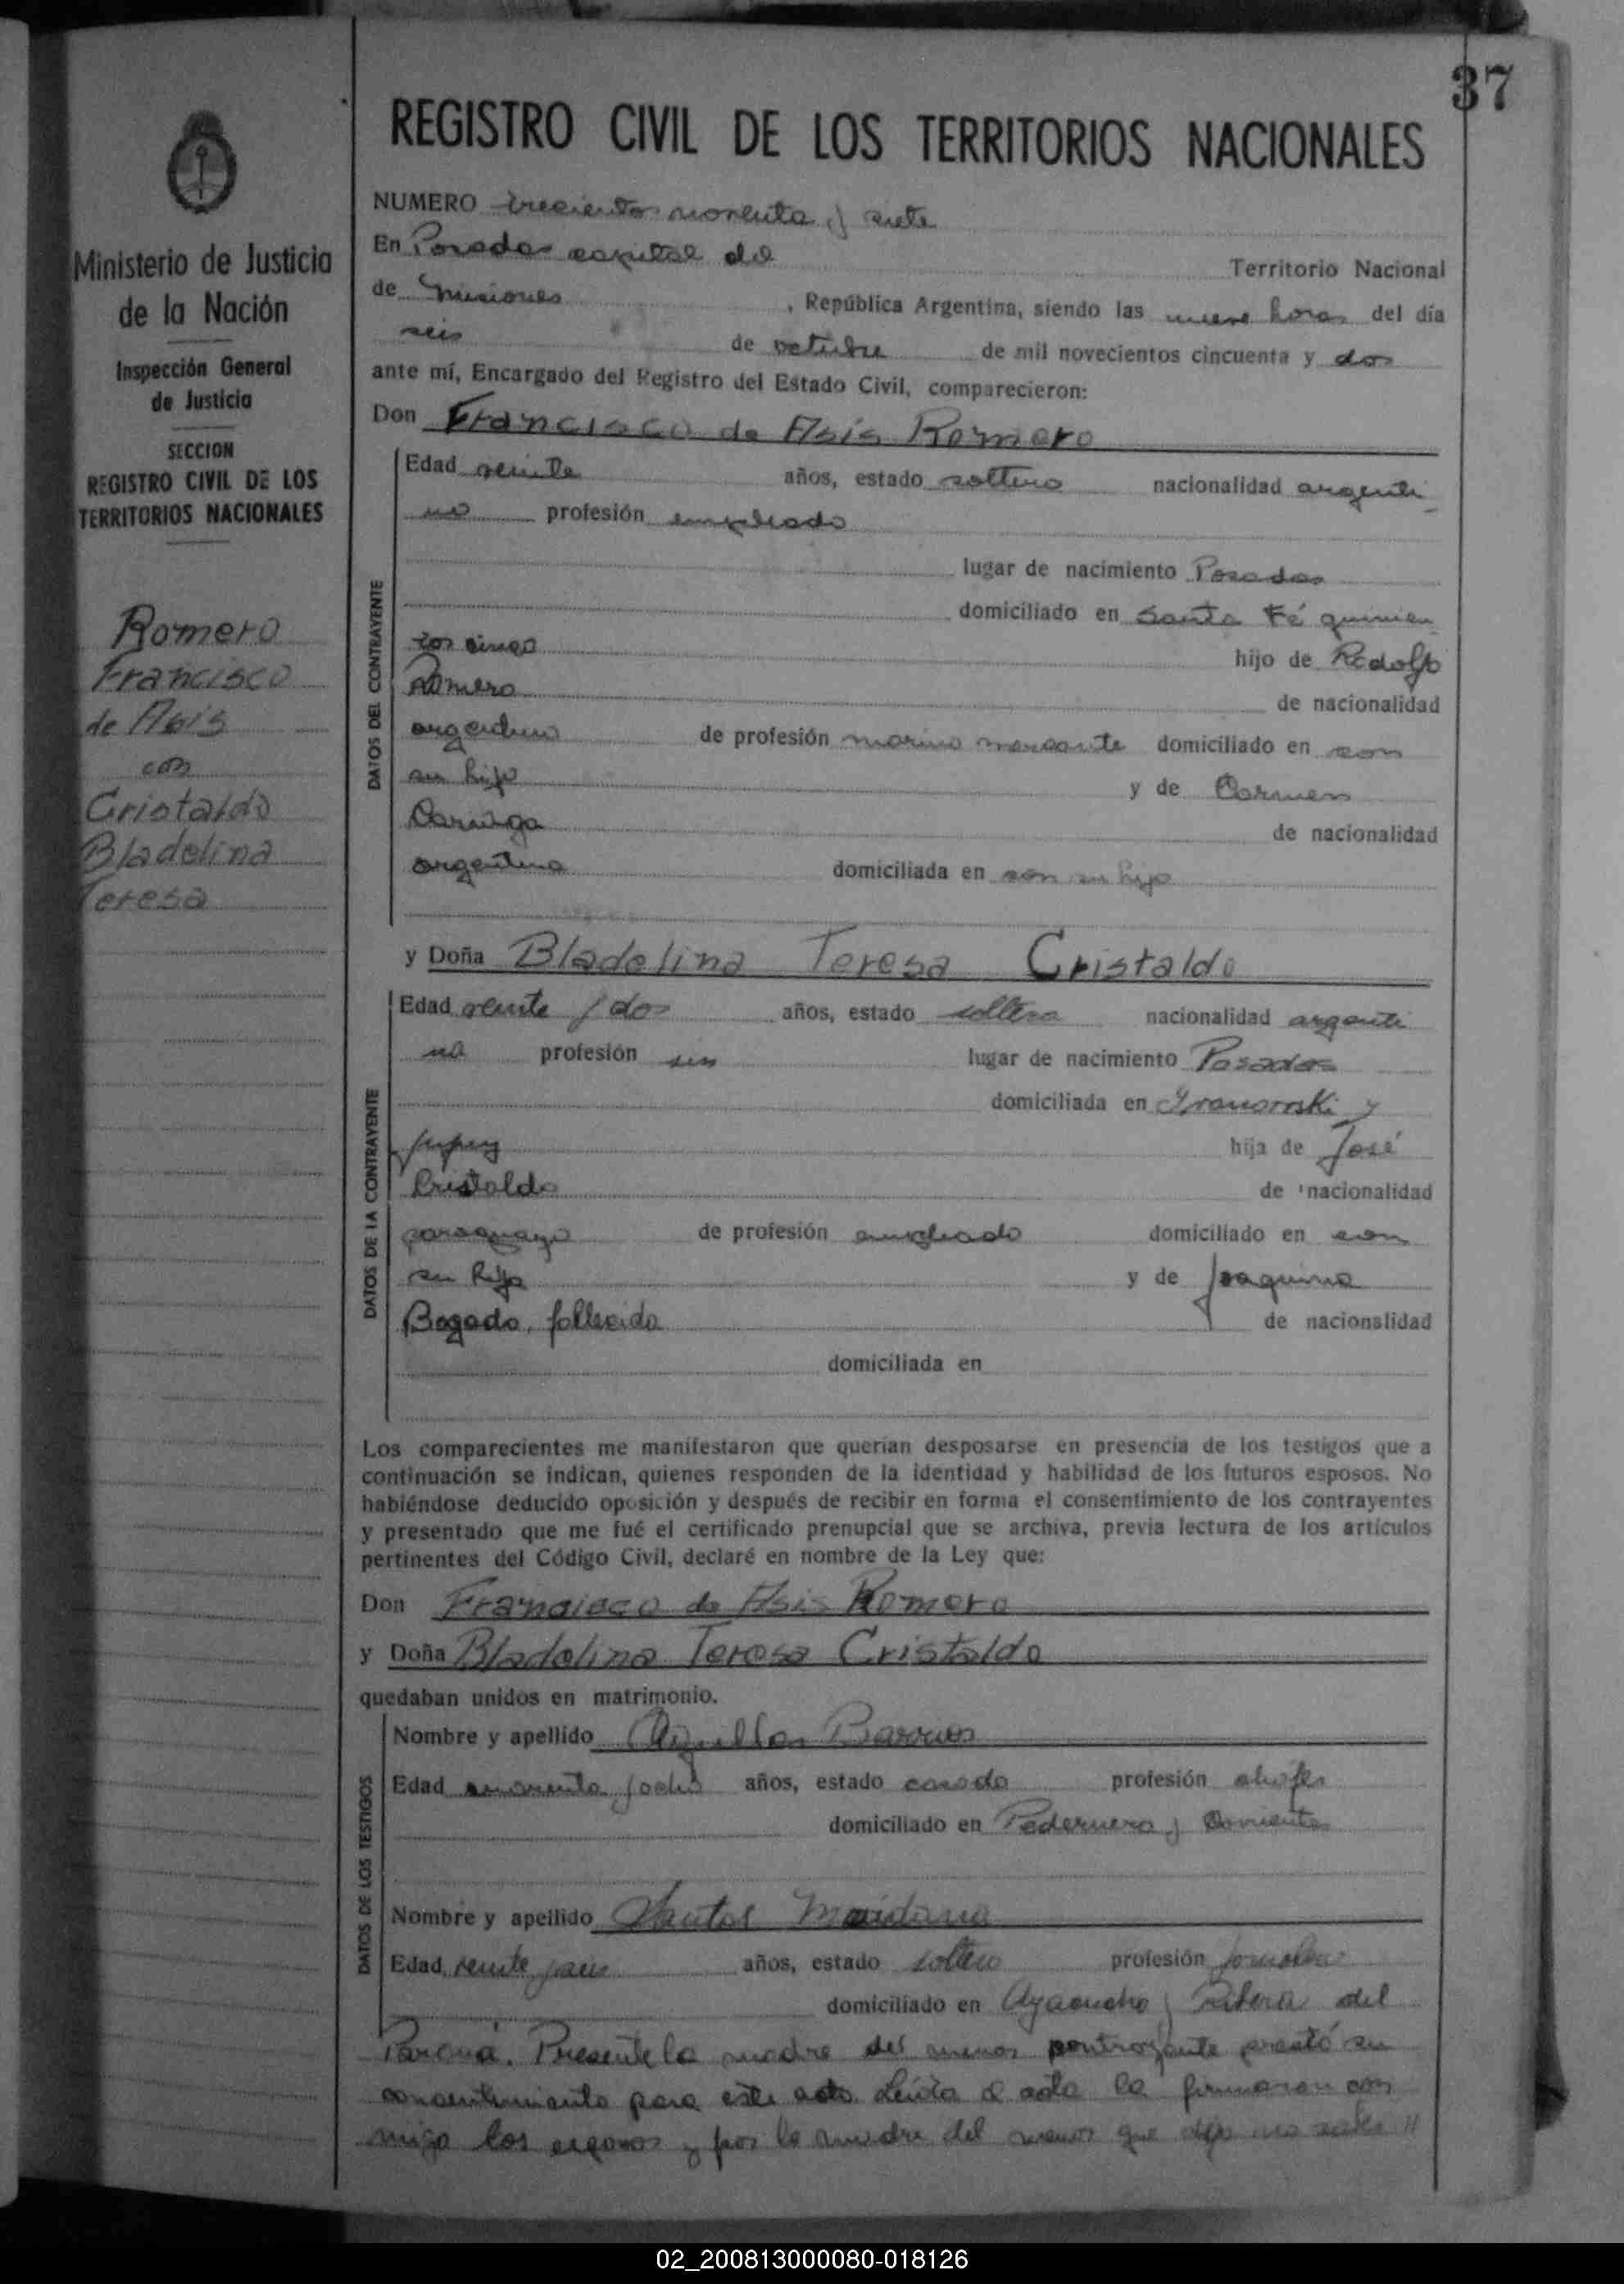 37
REGISTRO CIVIL DE LOS TERRITORIOS NACIONALES
Ministerio de Justicia
de la Nación
Inspección General
de Justicia
SECCION
REGISTRO CIVIL DE LOS
TERRITORIOS NACIONALES
Romero
Francisco
de Asis
con
Cristaldo
Bladelina
Teresa
NUMERO trecientos noventa y siete
En Posadas capital del Territorio Nacional
de Misiones, República Argentina, siendo las nueve horas del día
seis de octubre de mil novecientos cincuenta y dos
ante mí, Encargado del Registro del Estado Civil, comparecieron:
Don Francisco de Asis Romero
DATOS DEL CONTRAYENTE
Edad veinte años, estado soltero nacionalidad argenti
no profesión empleado
lugar de nacimiento Posadas
domiciliado en Santa Fé quinien
tos cinco hijo de Rodolfo
Romero de nacionalidad
argentino de profesión marino mercante domiciliado en con
su hijo y de Carmen
de nacionalidad
argentina domiciliada en con su hijo
y Doña Bladelina Teresa Cristaldo
DATOS DE LA CONTRAYENTE
Edad veinte y dos años, estado soltera nacionalidad argenti
na profesión sin lugar de nacimiento Posadas
domiciliada en y
Jujuy hija de José
Cristaldo de nacionalidad
paraguayo de profesión empleado domiciliado en con
su hija y de Joaquina
Bogado, fallecida de nacionalidad
domiciliada en
Los comparecientes me manifestaron que querían desposarse en presencia de los testigos que a
continuación se indican, quienes responden de la identidad y habilidad de los futuros esposos. No
habiéndose deducido oposición y después de recibir en forma el consentimiento de los contrayentes
y presentado que me fué el certificado prenupcial que se archiva, previa lectura de los artículos
pertinentes del Código Civil, declaré en nombre de la Ley que:
Don Francisco de Asis Romero
y Doña Bladelina Teresa Cristaldo
quedaban unidos en matrimonio.
DATOS DE LOS TESTIGOS
Nombre y apellido Barrios
Edad y ocho años, estado casado profesión chofer
domiciliado en Pedernera y Corrientes
Nombre y apellido Santos Maidana
Edad veinte y seis años, estado soltero profesión jornalero
domiciliado en Ayacucho y Ribera del
Paraná. Presente la madre del menor contrayente prestó su
consentimiento para este acto. Leída el acta la firmaron con
migo los esposos y por la madre del menor que dijo no saber //
02_200813000080-018126